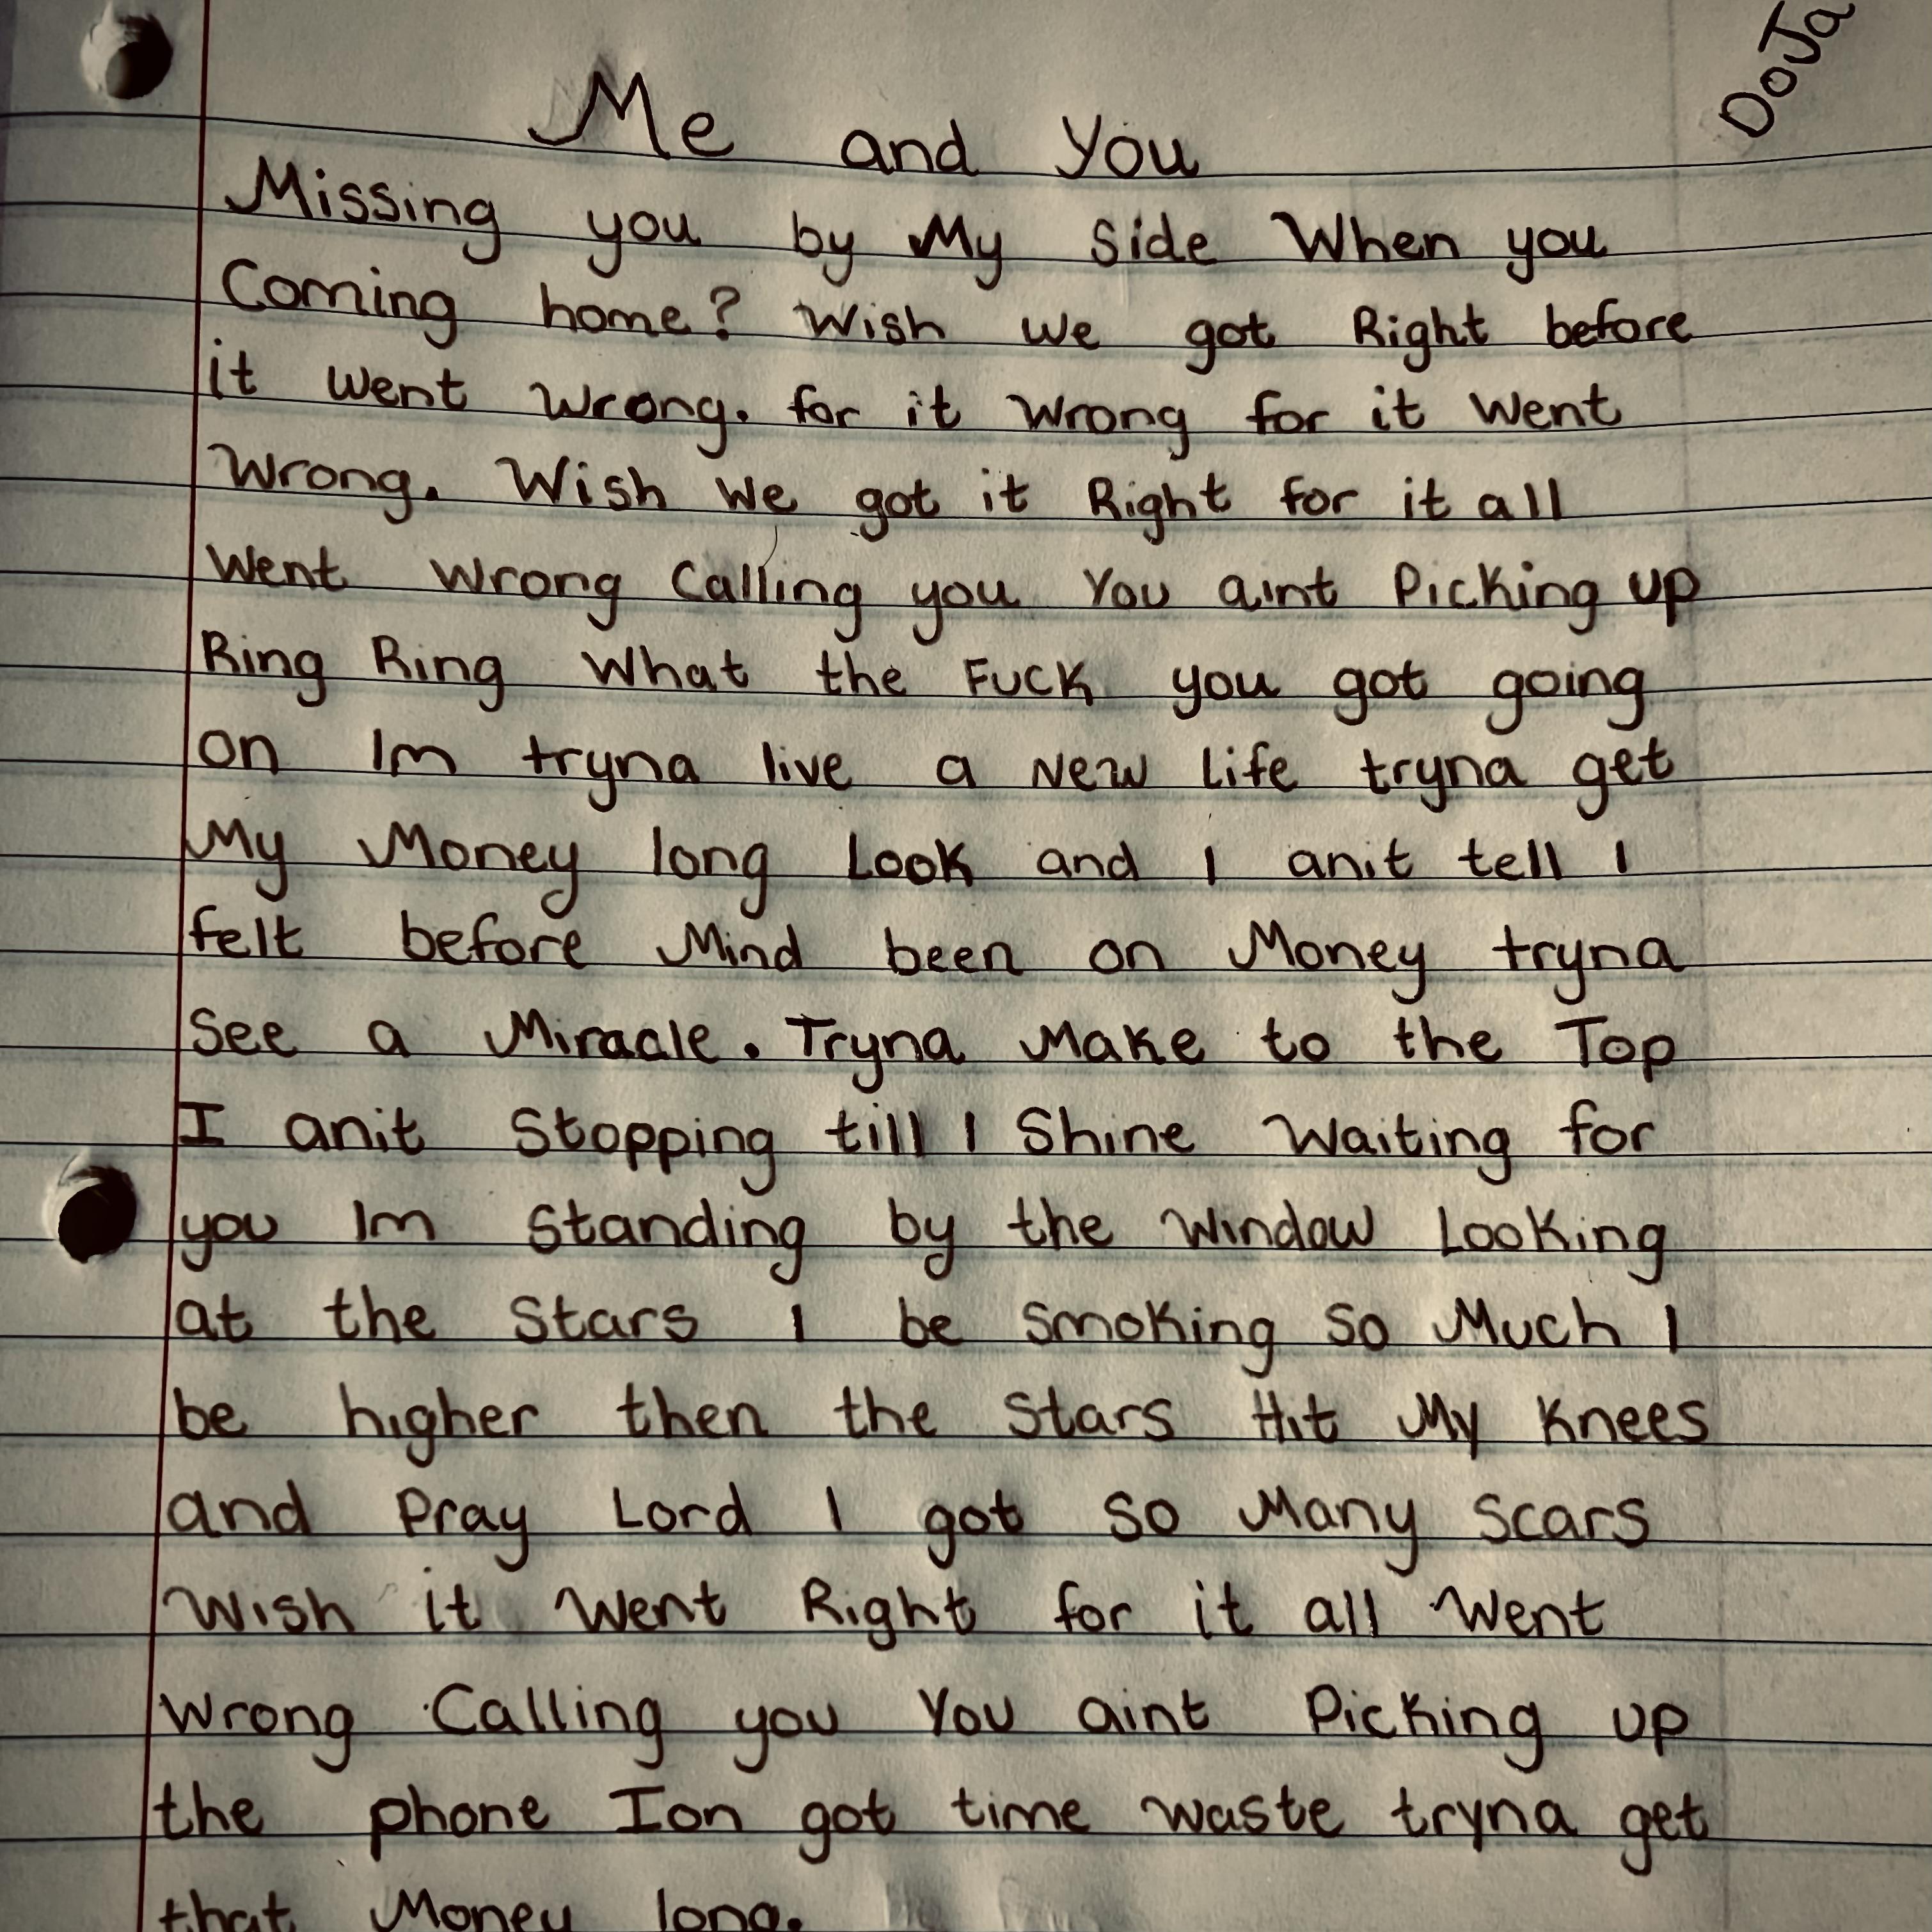 DoJa
Me and You
Missing you by My Side When you
Coming home? Wish we got Right before
it went wrong. for it wrong for it went
Wrong. Wish we got it Right for it all
went wrong Calling you You aint Picking up
Ring Ring What the FUCK you got going
on Im tryna live a New Life tryna get
My Money long Look and I anit tell I
felt before Mind been on Money tryna
See a Miracle. Tryna Make to the Top
I anit Stopping till I Shine Waiting for
you Im Standing by the Window Looking
at the Stars I be Smoking So Much I
be higher then the Stars Hit My Knees
and Pray Lord I got So Many Scars
Wish it Went Right for it all Went
Wrong Calling you You aint Picking up
the phone Ion got time waste tryna get
that Money long.